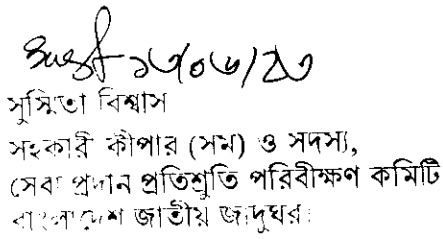 ১৩/০৬/২৩
সুস্মিতা বিশ্বাস
সহকারী কীপার (সম) ও সদস্য,
সেবা প্রদান প্রতিশ্রুতি পরিবীক্ষণ কমিটি
বাংলাদেশ জাতীয় জাদুঘর।